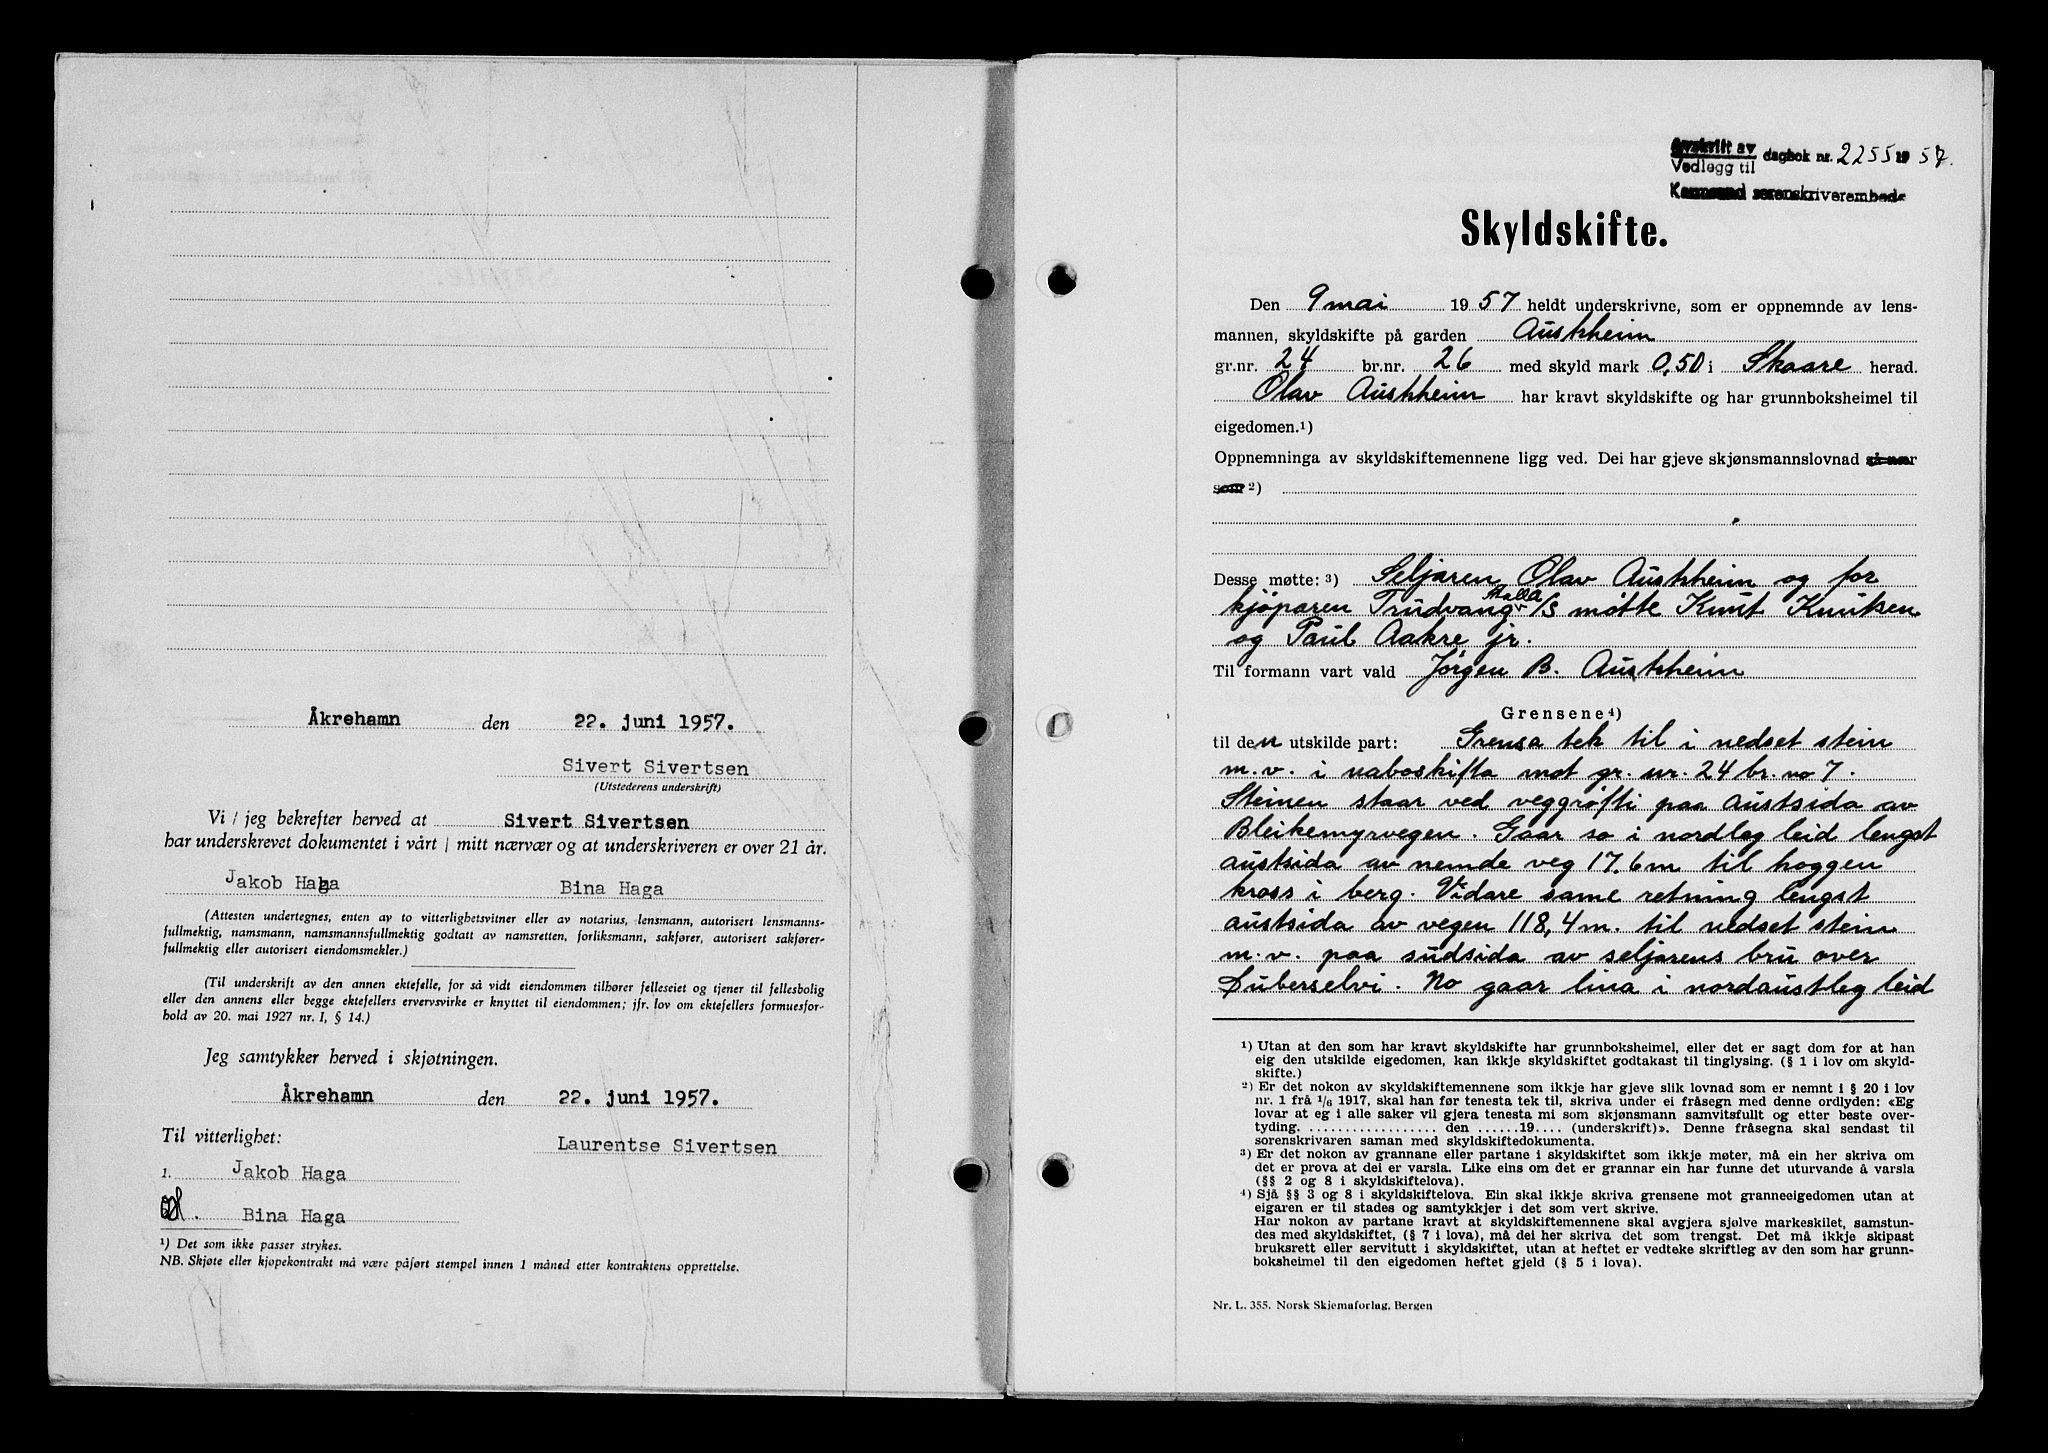 Åkrehamn den 22. juni 1957.
Sivert Sivertsen
(Utstederens underskrift)
Vi / jeg bekrefter herved at Sivert Sivertsen
har underskrevet dokumentet i vårt / mitt nærvær og at underskriveren er over 21 år.
Jakob Haga Bina Haga
(Attesten undertegnes, enten av to vitterlighetsvitner eller av notarius, lensmann, autorisert lensmanns-
fullmektig, namsmann, namsmannsfullmektig godtatt av namsretten, forliksmann, sakfører, autorisert sakfører-
fullmektig eller autorisert eiendomsmekler.)
(Til underskrift av den annen ektefelle, for så vidt eiendommen tilhører felleseiet og tjener til fellesbolig
eller den annens eller begge ektefellers ervervsvirke er knyttet til eiendommen; jfr. lov om ektefellers formuesfor-
hold av 20. mai 1927 nr. I, § 14.)
Jeg samtykker herved i skjøtningen.
Åkrehamn den 22. juni 1957.
Til vitterlighet:
Laurentse Sivertsen
1. Jakob Haga
Bina Haga
¹) Det som ikke passer strykes.
NB. Skjøte eller kjøpekontrakt må være påført stempel innen 1 måned etter kontraktens opprettelse.
Avskrift av
Vedlegg til dagbok nr. 2255 19 57.
Karmsund sorenskriverembede
Skyldskifte.
Den 9 mai 1957 heldt underskrivne, som er oppnemnde av lens-
mannen, skyldskifte på garden Austrheim
gr.nr. 24 br.nr. 26 med skyld mark 0,50 i Skaare herad.
Olav Austrheim har kravt skyldskifte og har grunnboksheimel til
eigedomen.¹)
Oppnemninga av skyldskiftemennene ligg ved. Dei har gjeve skjønsmannslovnad så nær
som ²)
Desse møtte: ³) Seljaren Olav Austrheim og for
kjöparen Trudvang Halla A/S møtte Knut Knutsen
og Paul Aakre jr.
Til formann vart vald Jørgen B. Austrheim
Grensene ⁴)
til den utskilde part: Grensa tek til i nedset stein
m.v. i naboskifta mot gr. nr. 24 br. no 7.
Steinen staar ved veggrøfti paa austsida av
Bleikemyrvegen. Gaar so i nordleg leid lengst
austsida av nemde veg 17,6 m til hoggen
kross i berg. Vidare same retning lengst
austsida av vegen 118,4 m. til nedset stein
m.v. paa sudsida av seljarens bru over
Duberselvi. No gaar lina i nordaustleg leid
¹) Utan at den som har kravt skyldskifte har grunnboksheimel, eller det er sagt dom for at han
eig den utskilde eigedomen, kan ikkje skyldskiftet godtakast til tinglysing. (§ 1 i lov om skyld-
skifte.)
²) Er det nokon av skyldskiftemennene som ikkje har gjeve slik lovnad som er nemnt i § 20 i lov
nr. 1 frå 1/6 1917, skal han før tenesta tek til, skriva under ei fråsegn med denne ordlyden: «Eg
lovar at eg i alle saker vil gjera tenesta mi som skjønsmann samvitsfullt og etter beste over-
tyding. .................. den ......19.... (underskrift)». Denne fråsegna skal sendast til
sorenskrivaren saman med skyldskiftedokumenta.
³) Er det nokon av grannane eller partane i skyldskiftet som ikkje møter, må ein her skriva om
det er prova at dei er varsla. Like eins om det er grannar ein har funne det uturvande å varsla
(§§ 2 og 8 i skyldskiftelova).
⁴) Sjå §§ 3 og 8 i skyldskiftelova. Ein skal ikkje skriva grensene mot granneeigedomen utan at
eigaren er til stades og samtykkjer i det som vert skrive.
Har nokon av partane kravt at skyldskiftemennene skal avgjera sjølve markeskilet, samstun-
des med skyldskiftet, (§ 7 i lova), må dei her skriva det som trengst. Det må ikkje skipast
bruksrett eller servitutt i skyldskiftet, utan at heftet er vedteke skriftleg av den som har grunn-
boksheimel til den eigedomen heftet gjeld (§ 5 i lova).
Nr. L. 355. Norsk Skjemaforlag, Bergen